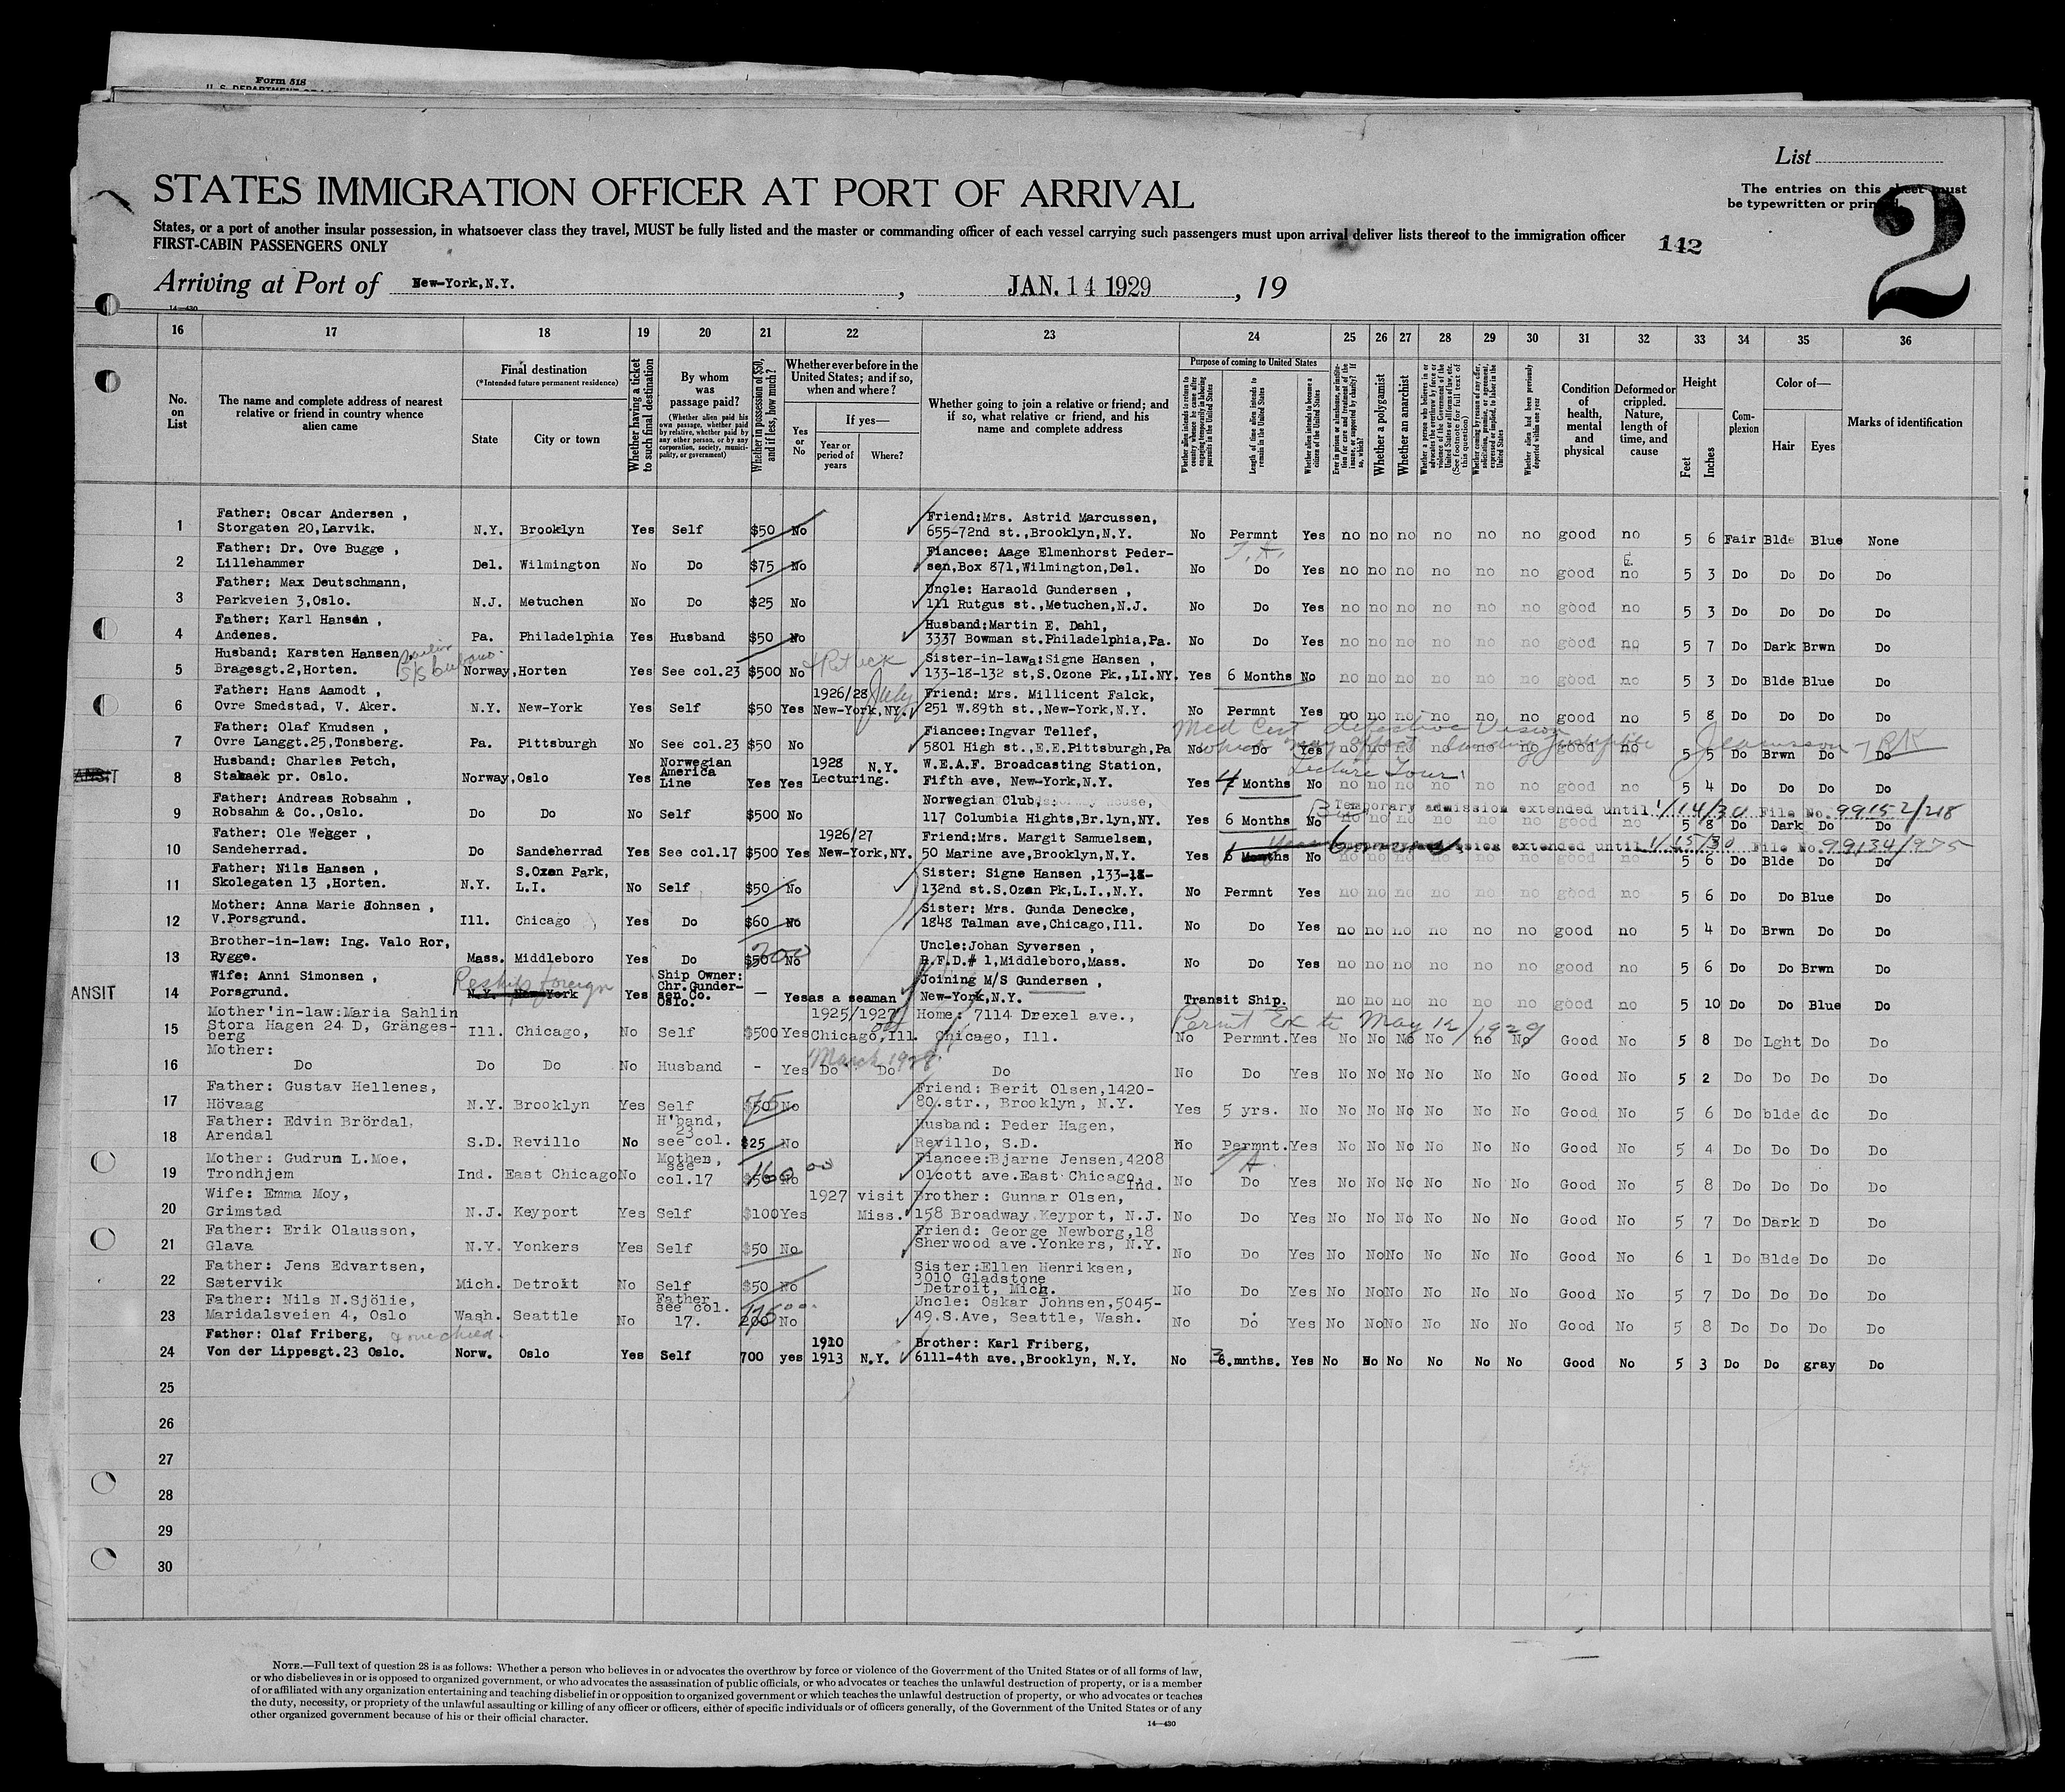 Form 518
List
STATES IMMIGRATION OFFICER AT PORT OF ARRIVAL
The entries on this sheet must
be typewritten or printed.
2
States, or a port of another insular possession, in whatsoever class they travel, MUST be fully listed and the master or commanding officer of each vessel carrying such passengers must upon arrival deliver lists thereof to the immigration officer
FIRST-CABIN PASSENGERS ONLY
142
Arriving at Port of New-York,N.Y. , JAN. 14 1929 , 19
14—430
16 17 18 19 20 21 22 23 24 25 26 27 28 29 30 31 32 33 34 35 36
No. on List
The name and complete address of nearest relative or friend in country whence alien came
Final destination
(*Intended future permanent residence)
State
City or town
Whether having a ticket to such final destination
By whom was passage paid?
(Whether alien paid his own passage, whether paid by relative, whether paid by any other person, or by any corporation, society, municipality, or government)
Whether in possession of $50, and if less, how much?
Whether ever before in the United States; and if so, when and where?
Yes or No
If yes—
Year or period of years
Where?
Whether going to join a relative or friend; and if so, what relative or friend, and his name and complete address
Purpose of coming to United States
Whether alien intends to return to country whence he came after engaging temporarily in laboring pursuits in the United States
Length of time alien intends to remain in the United States
Whether alien intends to become a citizen of the United States
Ever in prison or almshouse, or institution for care and treatment of the insane, or supported by charity? If so, which?
Whether a polygamist
Whether an anarchist
Whether a person who believes in or advocates the overthrow by force or violence of the Government of the United States or all forms of law, etc. (See footnote for full text of this question)
Whether coming by reason of any offer, solicitation, promise, or agreement, expressed or implied, to labor in the United States
Whether alien had been previously deported within one year
Condition of health, mental and physical
Deformed or crippled. Nature, length of time, and cause
Height
Feet
Inches
Complexion
Color of—
Hair
Eyes
Marks of identification
1 Father: Oscar Andersen , Storgaten 20,Larvik. N.Y. Brooklyn Yes Self $50 No Friend:Mrs. Astrid Marcussen, 655-72nd st.,Brooklyn,N.Y. No Permnt Yes no no no no no no good no 5 6 Fair Blde Blue None
2 Father: Dr. Ove Bugge , Lillehammer Del. Wilmington No Do $75 No Fiancee: Aage Elmenhorst Pedersen,Box 871,Wilmington,Del. No T.A. Do Yes no no no no no no good no 5 3 Do Do Do Do
3 Father: Max Deutschmann, Parkveien 3,Oslo. N.J. Metuchen No Do $25 No Uncle: Haraold Gundersen , 111 Rutgus st.,Metuchen,N.J. No Do Yes no no no no no no good no 5 3 Do Do Do Do
4 Father: Karl Hansen , Andenes. Pa. Philadelphia Yes Husband $50 No Husband:Martin E. Dahl, 3337 Bowman st.Philadelphia,Pa. No Do Yes no no no no no no good no 5 7 Do Dark Brwn Do
5 Husband: Karsten Hansen Bragesgt.2,Horten. Norway,Horten Yes See col.23 $500 No Sister-in-law:Signe Hansen , 133-18-132 st,S.Ozone Pk.,LI.NY. Yes 6 Months No no no no no no no good no 5 3 Do Blde Blue Do
6 Father: Hans Aamodt , Ovre Smedstad, V. Aker. N.Y. New-York Yes Self $50 Yes 1926/28 July New-York,NY. Friend: Mrs. Millicent Falck, 251 W.89th st.,New-York,N.Y. No Permnt Yes no no no no no no good no 5 8 Do Do Do Do
Med Cert defective Vision
7 Father: Olaf Knudsen , Ovre Langgt.25,Tonsberg. Pa. Pittsburgh No See col.23 $50 No Fiancee:Ingvar Tellef, 5801 High st.,E.E.Pittsburgh,Pa No Do Yes no no no no no no good no 5 5 Do Brwn Do Do
ANSIT 8 Husband: Charles Petch, Stabæk pr. Oslo. Norway,Oslo Yes Norwegian America Line Yes Yes 1928 N.Y. Lecturing. W.E.A.F. Broadcasting Station, Fifth ave, New-York,N.Y. Yes 4 Months No Lecture Tour no no no no no no good no 5 4 Do Do Do Do
9 Father: Andreas Robsahm , Robsahm & Co.,Oslo. Do Do No Self $500 No Norwegian Club, 117 Columbia Hights,Br.lyn,NY. Yes 6 Months No no no no no no no good no 5 8 Do Dark Do Do
Temporary admission extended until 1/14/30 File No. 99152/218
10 Father: Ole Wegger , Sandeherrad. Do Sandeherrad Yes See col.17 $500 Yes 1926/27 New-York,NY. Friend:Mrs. Margit Samuelsen, 50 Marine ave,Brooklyn,N.Y. Yes 6 Months No 5 6 Do Blde Do Do
extended until 1/15/30 File No. 99134/975
11 Father: Nils Hansen , Skolegaten 13 ,Horten. N.Y. S.Ozon Park, L.I. No Self $50 No Sister: Signe Hansen ,133-18-132nd st.S.Ozon Pk,L.I.,N.Y. No Permnt Yes no no no no no no good no 5 6 Do Do Blue Do
12 Mother: Anna Marie Johnsen , V.Porsgrund. Ill. Chicago Yes Do $60 No Sister: Mrs. Gunda Denecke, 1848 Talman ave,Chicago,Ill. No Do Yes no no no no no no good no 5 4 Do Brwn Do Do
13 Brother-in-law: Ing. Valo Ror, Rygge. Mass. Middleboro Yes Do $50 200 No Uncle:Johan Syversen , R.F.D.# 1,Middleboro,Mass. No Do Yes no no no no no no good no 5 6 Do Do Brwn Do
ANSIT 14 Wife: Anni Simonsen , Porsgrund. Reship foreign N.Y. New-York Yes Ship Owner: Chr.Gundersen Co. Oslo. — Yes as a seaman Joining M/S Gundersen , New-York,N.Y. Transit Ship. no no no no no no good no 5 10 Do Do Blue Do
Permit Ex to May 12/1929
15 Mother'in-law:Maria Sahlin Stora Hagen 24 D, Grängesberg Ill. Chicago, No Self $500 Yes 1925/1927 Chicago,Ill. Home: 7114 Drexel ave., Chicago, Ill. No Permnt. Yes No No No No no No Good No 5 8 Do Lght Do Do
16 Mother: Do Do Do No Husband - Yes March 1928 Do Do Do No Do Yes No No No No No No Good No 5 2 Do Do Do Do
17 Father: Gustav Hellenes, Hövaag N.Y. Brooklyn Yes Self $50 75 No Friend: Berit Olsen,1420-80.str., Brooklyn, N.Y. Yes 5 yrs. No No No No No No No Good No 5 6 Do blde do Do
18 Father: Edvin Brördal, Arendal S.D. Revillo No H'band, see col. 23 $25 No Husband: Peder Hagen, Revillo, S.D. No Permnt. Yes No No No No No No Good No 5 4 Do Do Do Do
19 Mother: Gudrun L.Moe, Trondhjem Ind. East Chicago No Mother, see col.17 $50 No Fiancee:Bjarne Jensen,4208 Olcott ave.East Chicago, Ind. No T A Do Yes No No No No No No Good No 5 8 Do Do Do Do
20 Wife: Emma Moy, Grimstad N.J. Keyport Yes Self $100 Yes 1927 visit Miss. Brother: Gunnar Olsen, 158 Broadway Keyport, N.J. No Do Yes No No No No No No Good No 5 7 Do Dark D Do
21 Father: Erik Olausson, Glava N.Y. Yonkers Yes Self $50 No Friend: George Newborg,18 Sherwood ave.Yonkers, N.Y. No Do Yes No No No No No No Good No 6 1 Do Blde Do Do
22 Father: Jens Edvartsen, Sætervik Mich. Detroit No Self $50 No Sister:Ellen Henriksen, 3010 Gladstone Detroit, Mich. No Do Yes No No No No No No Good No 5 7 Do Do Do Do
23 Father: Nils N.Sjölie, Maridalsveien 4, Oslo Wash. Seattle No Father see col. 17. 200 175 No Uncle: Oskar Johnsen,5045-49.S.Ave, Seattle, Wash. No Do Yes No No No No No No Good No 5 8 Do Do Do Do
24 Father: Olaf Friberg, & one child. Von der Lippesgt.23 Oslo. Norw. Oslo Yes Self 700 yes 1910 1913 N.Y. Brother: Karl Friberg, 6111-4th ave.,Brooklyn, N.Y. No 6.mnths. Yes No No No No No No Good No 5 3 Do Do gray Do
25
26
27
28
29
30
NOTE.—Full text of question 28 is as follows: Whether a person who believes in or advocates the overthrow by force or violence of the Government of the United States or of all forms of law,
or who disbelieves in or is opposed to organized government, or who advocates the assassination of public officials, or who advocates or teaches the unlawful destruction of property, or is a member
of or affiliated with any organization entertaining and teaching disbelief in or opposition to organized government or which teaches the unlawful destruction of property, or who advocates or teaches
the duty, necessity, or propriety of the unlawful assaulting or killing of any officer or officers, either of specific individuals or of officers generally, of the Government of the United States or of any
other organized government because of his or their official character.
14—430